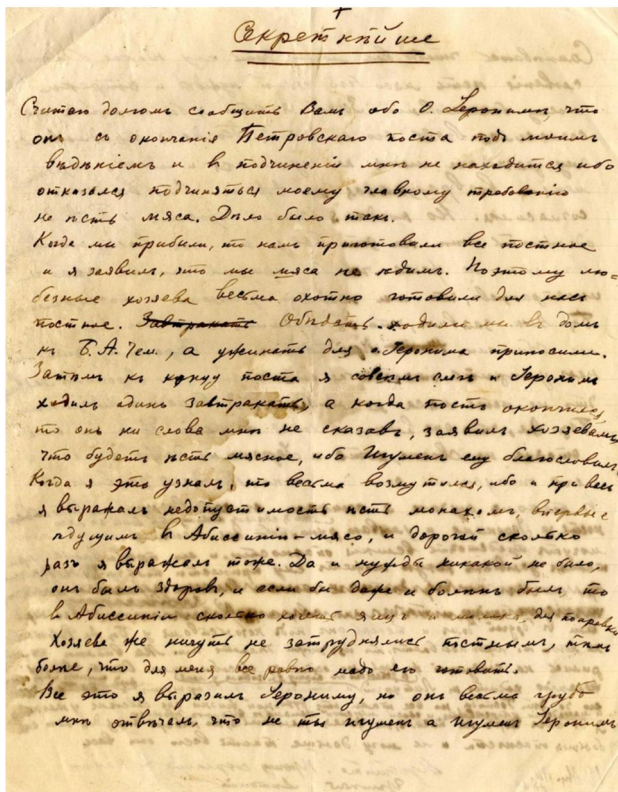 +
Секретнѣйше
Считаю долгомъ сообщить Вамъ объ О. Іеронимѣ, что
онъ съ окончанія Петровскаго поста подъ моимъ
вѣдѣніемъ и в подчиненіи мнѣ не находится ибо
отказался подчиняться моему главному требованію
не ѣсть мяса. Дѣло было такъ.
Когда мы прибыли, то намъ приготовили все постное
и я заявилъ, что мы мяса не ядимъ. Поэтому лю-
безные хозяева весьма охотно готовили для насъ
постное. Завтракать Обѣдать ходили мы въ домъ
къ Б. А. Чем., а ужинать для о. Іеронима приносили.
Затѣмъ къ концу поста я совсѣмъ слегъ и Іеронимъ
ходилъ одинъ завтракать, а когда постъ окончился,
то онъ ни слова мнѣ не сказавъ, заявилъ хозяевамъ,
что будетъ ѣсть мясное, ибо Игуменъ ему благословилъ.
Когда я это узналъ, то весьма возмутился, ибо и при весь
я выражалъ недопустимость ѣсть монахомъ, впервые
ѣдущимъ въ Абиссинію мясо, и дорогой сколько
разъ я выражалъ тоже. Да и нужды никакой не было,
онъ былъ здоровъ, и если бы даже и боленъ былъ то
в Абиссиніи сколько хочешь яицъ и для поправки
Хозяева же ничуть не затруднялись постнымъ, тѣмъ
болѣе, что для меня все равно надо его готовить.
Все это я выразилъ Іерониму, но онъ весьма грубо
мнѣ отвѣчалъ, что не ты игуменъ а игуменъ Іеронимъ